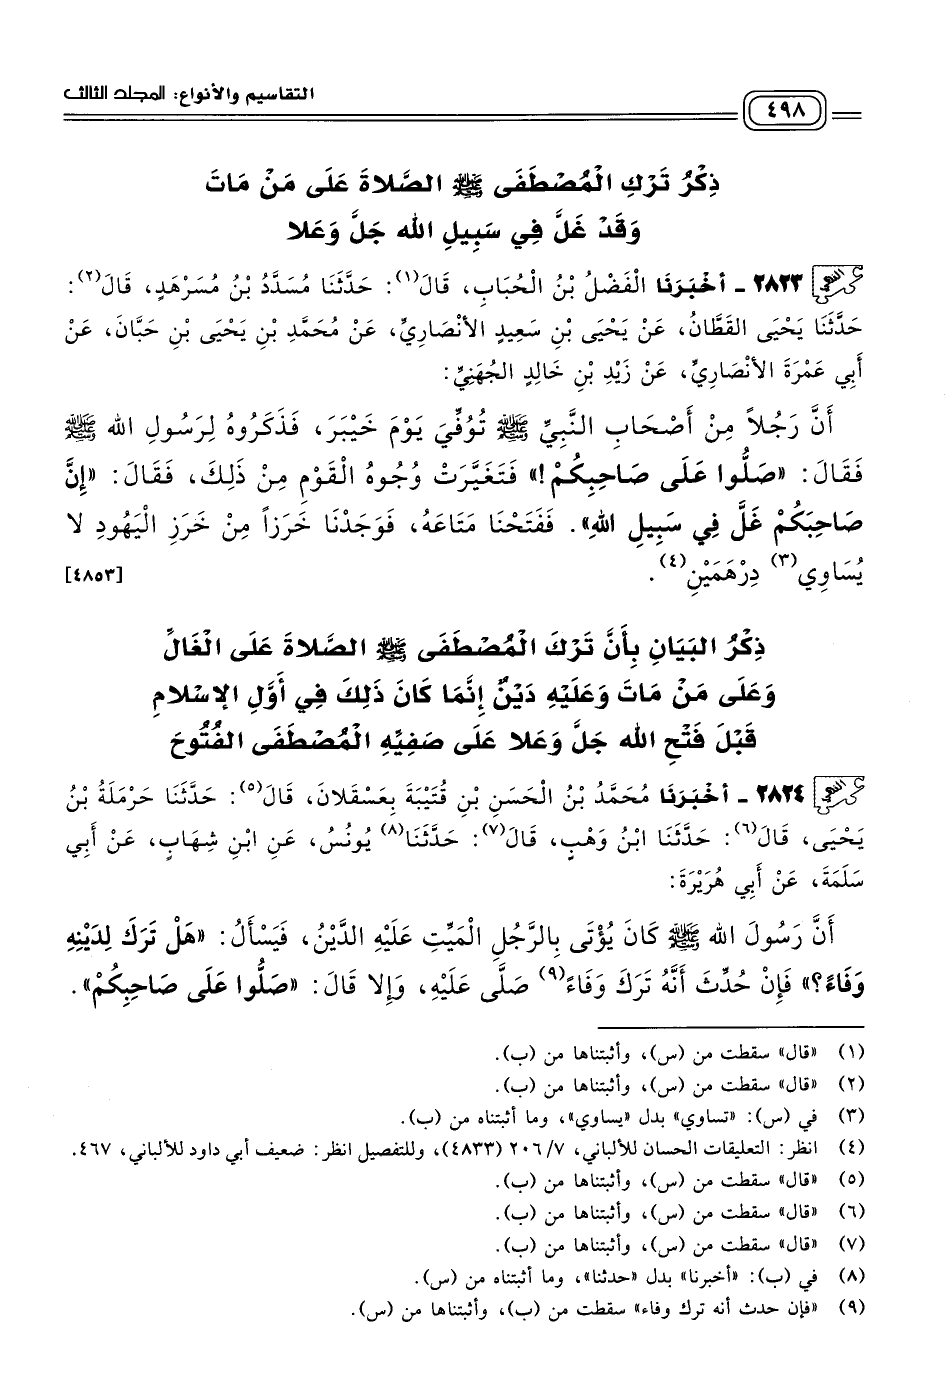 التقاسيم والأنواع: المجلد الثالث
٤٩٨
ذِكْرُ تَرْكِ الْمُصْطَفَى ﷺ الصَّلاةَ عَلَى مَنْ مَاتَ
وَقَدْ غَلَّ فِي سَبِيلِ الله جَلَّ وَعَلا
٢٨٢٣ - أَخْبَرَنَا الْفَضْلُ بْنُ الْحُبَابِ، قَالَ(١): حَدَّثَنَا مُسَدَّدُ بْنُ مُسَرْهَدٍ، قَالَ(٢):
حَدَّثَنَا يَحْيَى القَطَّانُ، عَنْ يَحْيَى بْنِ سَعِيدٍ الأنْصَارِيِّ، عَنْ مُحَمَّدِ بْنِ يَحْيَى بْنِ حَبَّانَ، عَنْ
أَبِي عَمْرَةَ الأنْصَارِيِّ، عَنْ زَيْدِ بْنِ خَالِدٍ الجُهَنِيِّ:
أَنَّ رَجُلاً مِنْ أَصْحَابِ النَّبِيِّ ﷺ تُوُفِّيَ يَوْمَ خَيْبَرَ، فَذَكَرُوهُ لِرَسُولِ الله ﷺ
فَقَالَ: «صَلُّوا عَلَى صَاحِبِكُمْ!» فَتَغَيَّرَتْ وُجُوهُ الْقَوْمِ مِنْ ذَلِكَ، فَقَالَ: «إِنَّ
صَاحِبَكُمْ غَلَّ فِي سَبِيلِ اللهِ». فَفَتَحْنَا مَتَاعَهُ، فَوَجَدْنَا خَرَزاً مِنْ خَرَزِ الْيَهُودِ لا
يُسَاوِي(٣) دِرْهَمَيْنِ(٤). [٤٨٥٣]
ذِكْرُ البَيَانِ بِأَنَّ تَرْكَ الْمُصْطَفَى ﷺ الصَّلاةَ عَلَى الْغَالِّ
وَعَلَى مَنْ مَاتَ وَعَلَيْهِ دَيْنٌ إِنَّمَا كَانَ ذَلِكَ فِي أَوَّلِ الإسْلامِ
قَبْلَ فَتْحِ الله جَلَّ وَعَلا عَلَى صَفِيِّهِ الْمُصْطَفَى الفُتُوحَ
٢٨٢٤ - أَخْبَرَنَا مُحَمَّدُ بْنُ الْحَسَنِ بْنِ قُتَيْبَةَ بِعَسْقَلانَ، قَالَ(٥): حَدَّثَنَا حَرْمَلَةُ بْنُ
يَحْيَى، قَالَ(٦): حَدَّثَنَا ابْنُ وَهْبٍ، قَالَ(٧): حَدَّثَنَا(٨) يُونُسُ، عَنِ ابْنِ شِهَابٍ، عَنْ أَبِي
سَلَمَةَ، عَنْ أَبِي هُرَيْرَةَ:
أَنَّ رَسُولَ الله ﷺ كَانَ يُؤْتَى بِالرَّجُلِ الْمَيِّتِ عَلَيْهِ الدَّيْنُ، فَيَسْأَلُ: «هَلْ تَرَكَ لِدَيْنِهِ
وَفَاءً؟» فَإِنْ حُدِّثَ أَنَّهُ تَرَكَ وَفَاءً(٩) صَلَّى عَلَيْهِ، وَإِلا قَالَ: «صَلُّوا عَلَى صَاحِبِكُمْ».
(١) «قال» سقطت من (س)، وأثبتناها من (ب).
(٢) «قال» سقطت من (س)، وأثبتناها من (ب).
(٣) في (س): «تساوي» بدل «يساوي»، وما أثبتناه من (ب).
(٤) انظر: التعليقات الحسان للألباني، ٧/ ٢٠٦ (٤٨٣٣)، وللتفصيل انظر: ضعيف أبي داود للألباني، ٤٦٧.
(٥) «قال» سقطت من (س)، وأثبتناها من (ب).
(٦) «قال» سقطت من (س)، وأثبتناها من (ب).
(٧) «قال» سقطت من (س)، وأثبتناها من (ب).
(٨) في (ب): «أخبرنا» بدل «حدثنا»، وما أثبتناه من (س).
(٩) «فإن حدث أنه ترك وفاء» سقطت من (ب)، وأثبتناها من (س).